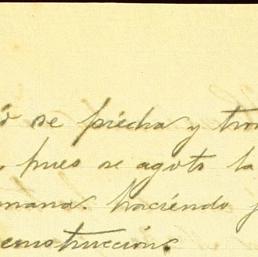 se piedra y
pues se agoto la
mana. haciendo
construcción.